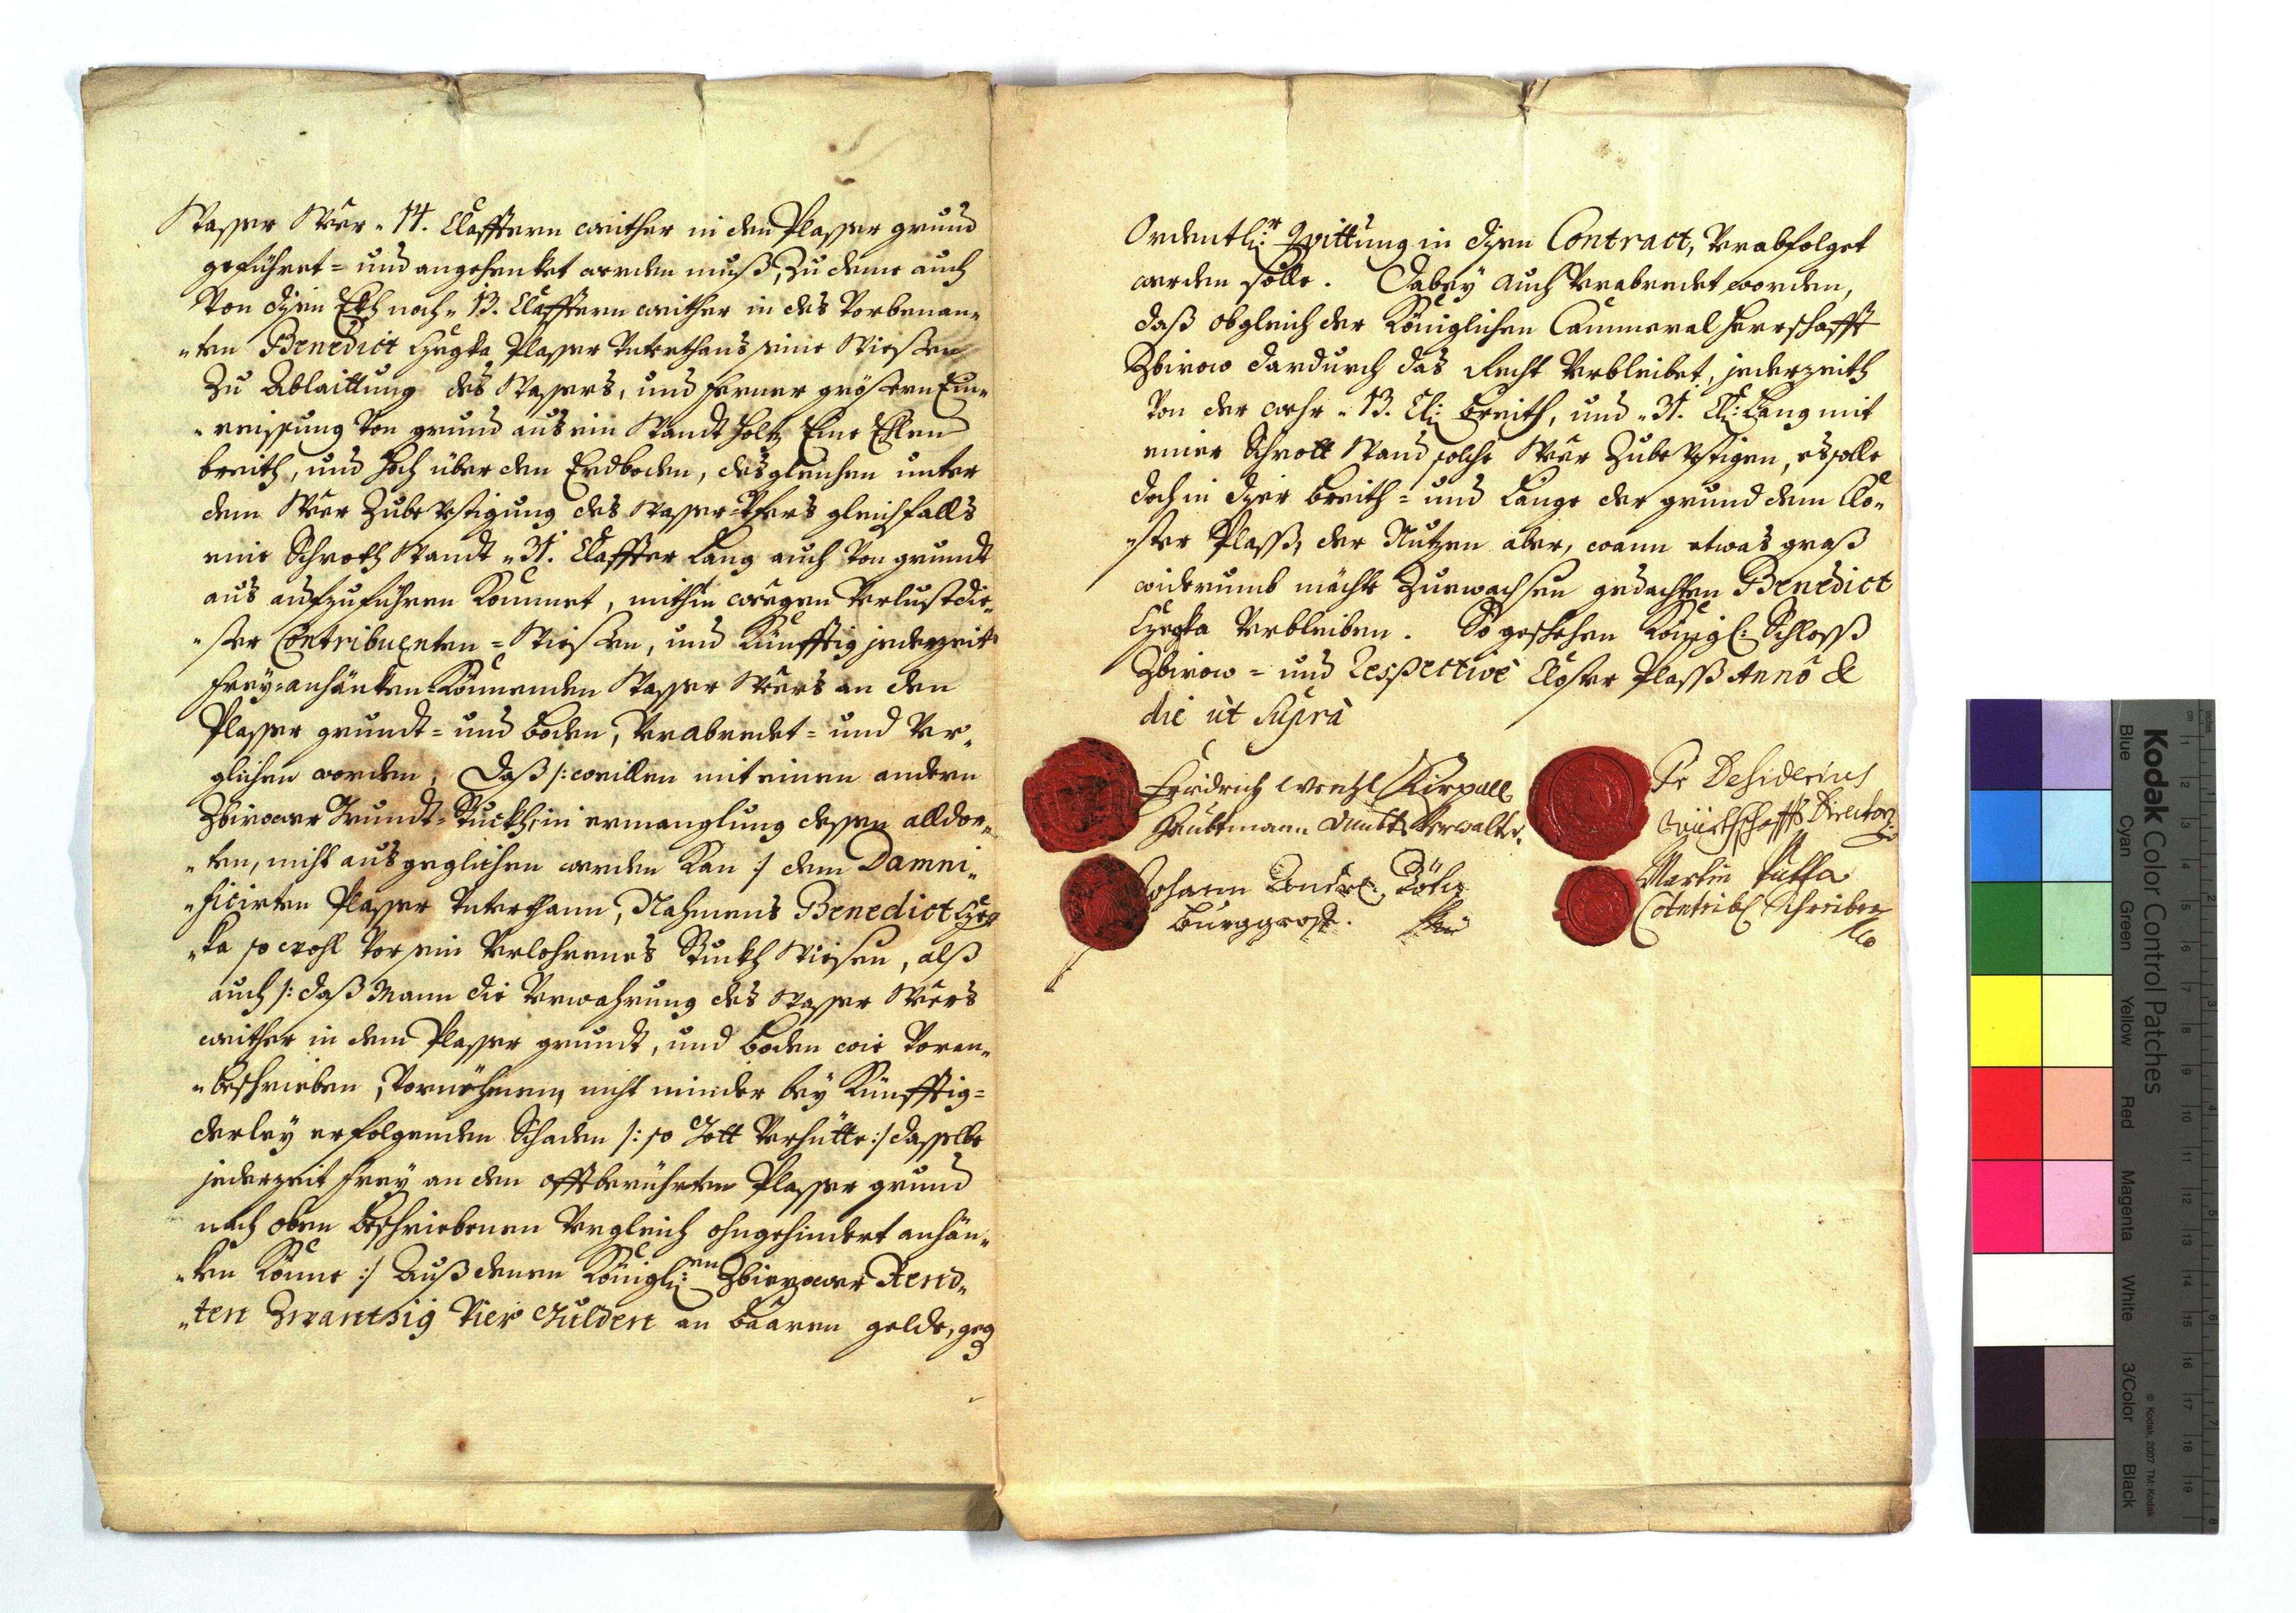 Wasser Wöer „14. Clafftern weither in den Plasser grund
geführet= und angehenket werden muß, Zu deme auch
Von diesen Eckh noch „13. Clafftern weither in des Vorbenan„
„ten Benedict Czegka Plasser Unterthans seine Wiesen
Zu Ablaittung des Wassers, und ferner größern Ein„
„reissung Von grund aus ein Wandt holtz Eine Ehlen
breith, und hoch über den Erdboden, desgleichen unter
dem Wöer Zubevestigung des Wasser=Ufers gleichfalls
eine Schroth Wandt „31. Claffter Lang auch Von grundt
aus aufzuführen Kommet, mithin weegen Verlust die„
„ser Contribuenten=Wiesen, und Künfftig jederzeit
frey=anhänken=Könnenden Wasser Wöers an den
Plasser grundt= und boden, Verabredet= und Ver„
glichen worden, Daß /: weillen mit einen andern
Zbirower Grundt=Stuckh, in ermanglung dessen alldor„
„ten, nicht ausgeglichen werden Kan :/ dem Damni„
„ficirten Plasser Unterthann, Nahmens Benedict Czeg„
„ka so wohl Vor sein Verlohrenes Stuckh Wiesen, alß
auch /: daß Mann die Verwahrung des Wasser Wöers
weither in dem Plasser grundt, und boden wie Voran„
„beschrieben, Vornehmen, nicht minder bey Künfftig=
derley erfolgenden Schaden /: so Gott Verhütte :/ dasselbe
jederzeit frey an den offtberührten Plasser grund
nach oben beschriebenen Vergleich ohngehindert anhän„
„ken Könne :/ Auß denen Königl:en Zbierower Rend„
„ten Zwantzig Vier Gulden an baaren gelde, geg
Ordentl:r Quittung in diesen Contract, Verabfolget
werden solle. Dabey auch Verabredet worden,
daß obgleich der Königlichen Cammeral Herrschafft
Zbirow dardurch das Recht Verbleibet, jederzeith
Von der wehr „13. Cl: breith, und „31. Cl: Lang mit
einer Schrott Wand solche Wöer Zubevestigen, es solle
doch in dieser breith= und Länge der grund dem Clo„
„ster Plaß, der Nutzen aber, wann etwas graß
widerumb möchte Zuwachsen gedachten Benedict
Czegka Verbleiben. So geschehen Königl: Schloß
Zbirow= und Respective Closter Plaß Anno &
die ut Supra
Fridrich Wenzl Kirpall
Haubtmann Ambts Verwalter.
Pr Desiderius
Würthschaffts Director
Johann Andre:
Burggraf.
Martin
Contrib: Schreiber